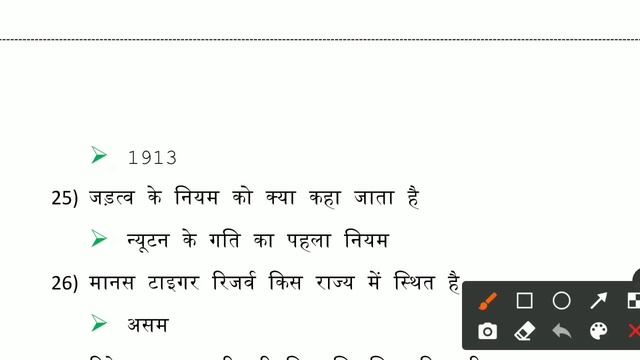 ➢ 1913
25) जड़त्व के नियम को क्या कहा जाता है
➢ न्यूटन के गति का पहला नियम
26) मानस टाइगर रिजर्व किस राज्य में स्थित है
➢ असम